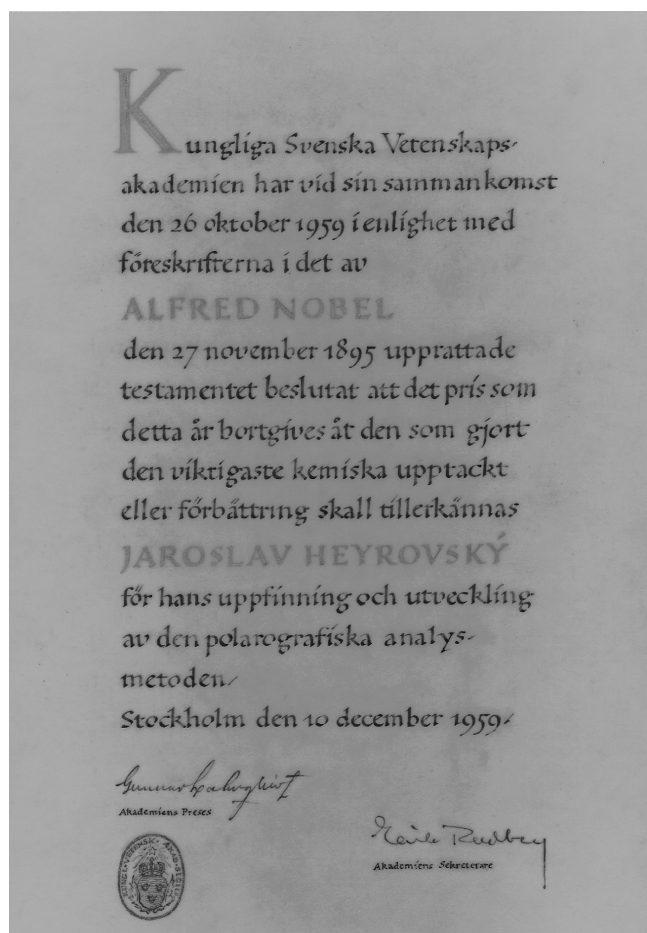 Kungliga Svenska Vetenskaps-
akademien har vid sin sammankomst
den 26 oktober 1959 i enlighet med
föreskrifterna i det av
ALFRED NOBEL
den 27 november 1895 upprattade
testamentet beslutat att det pris som
detta år bortgives åt den som gjort
den viktigaste kemiska upptackt
eller förbättring skall tillerkännas
JAROSLAV HEYROVSKÝ
för hans uppfinning och utveckling
av den polarografiska analys-
metoden/
Stockholm den 10 december 1959/
Gunnar
Akademiens Preses
Akademiens Sekreterare